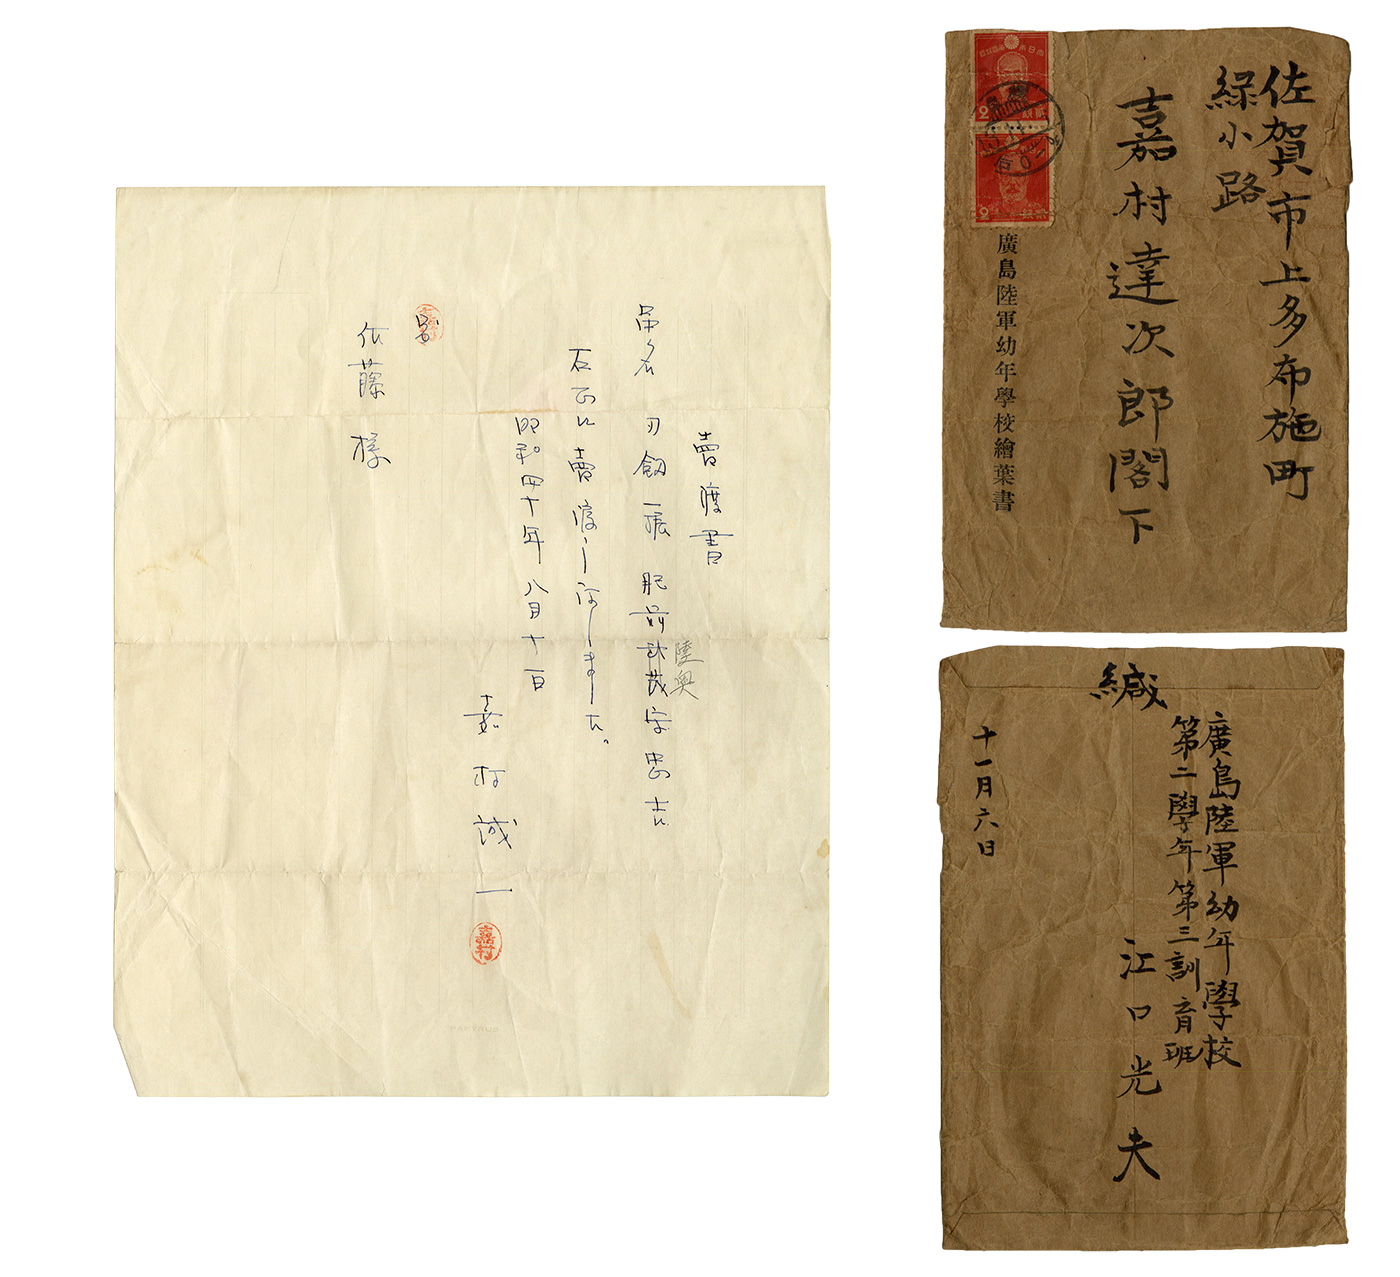 賣渡書
品名 刀劔一振 肥前武蔵守忠吉
陸奥
右正に賣渡し致しました。
昭和四十年八月十一日
嘉村誠一
嘉村
佐藤様
佐賀市上多布施町
緑小路
嘉村達次郎閣下
廣島陸軍幼年學校繪葉書
緘
廣島陸軍幼年學校
第二學年第三訓育班
江口光夫
十一月六日